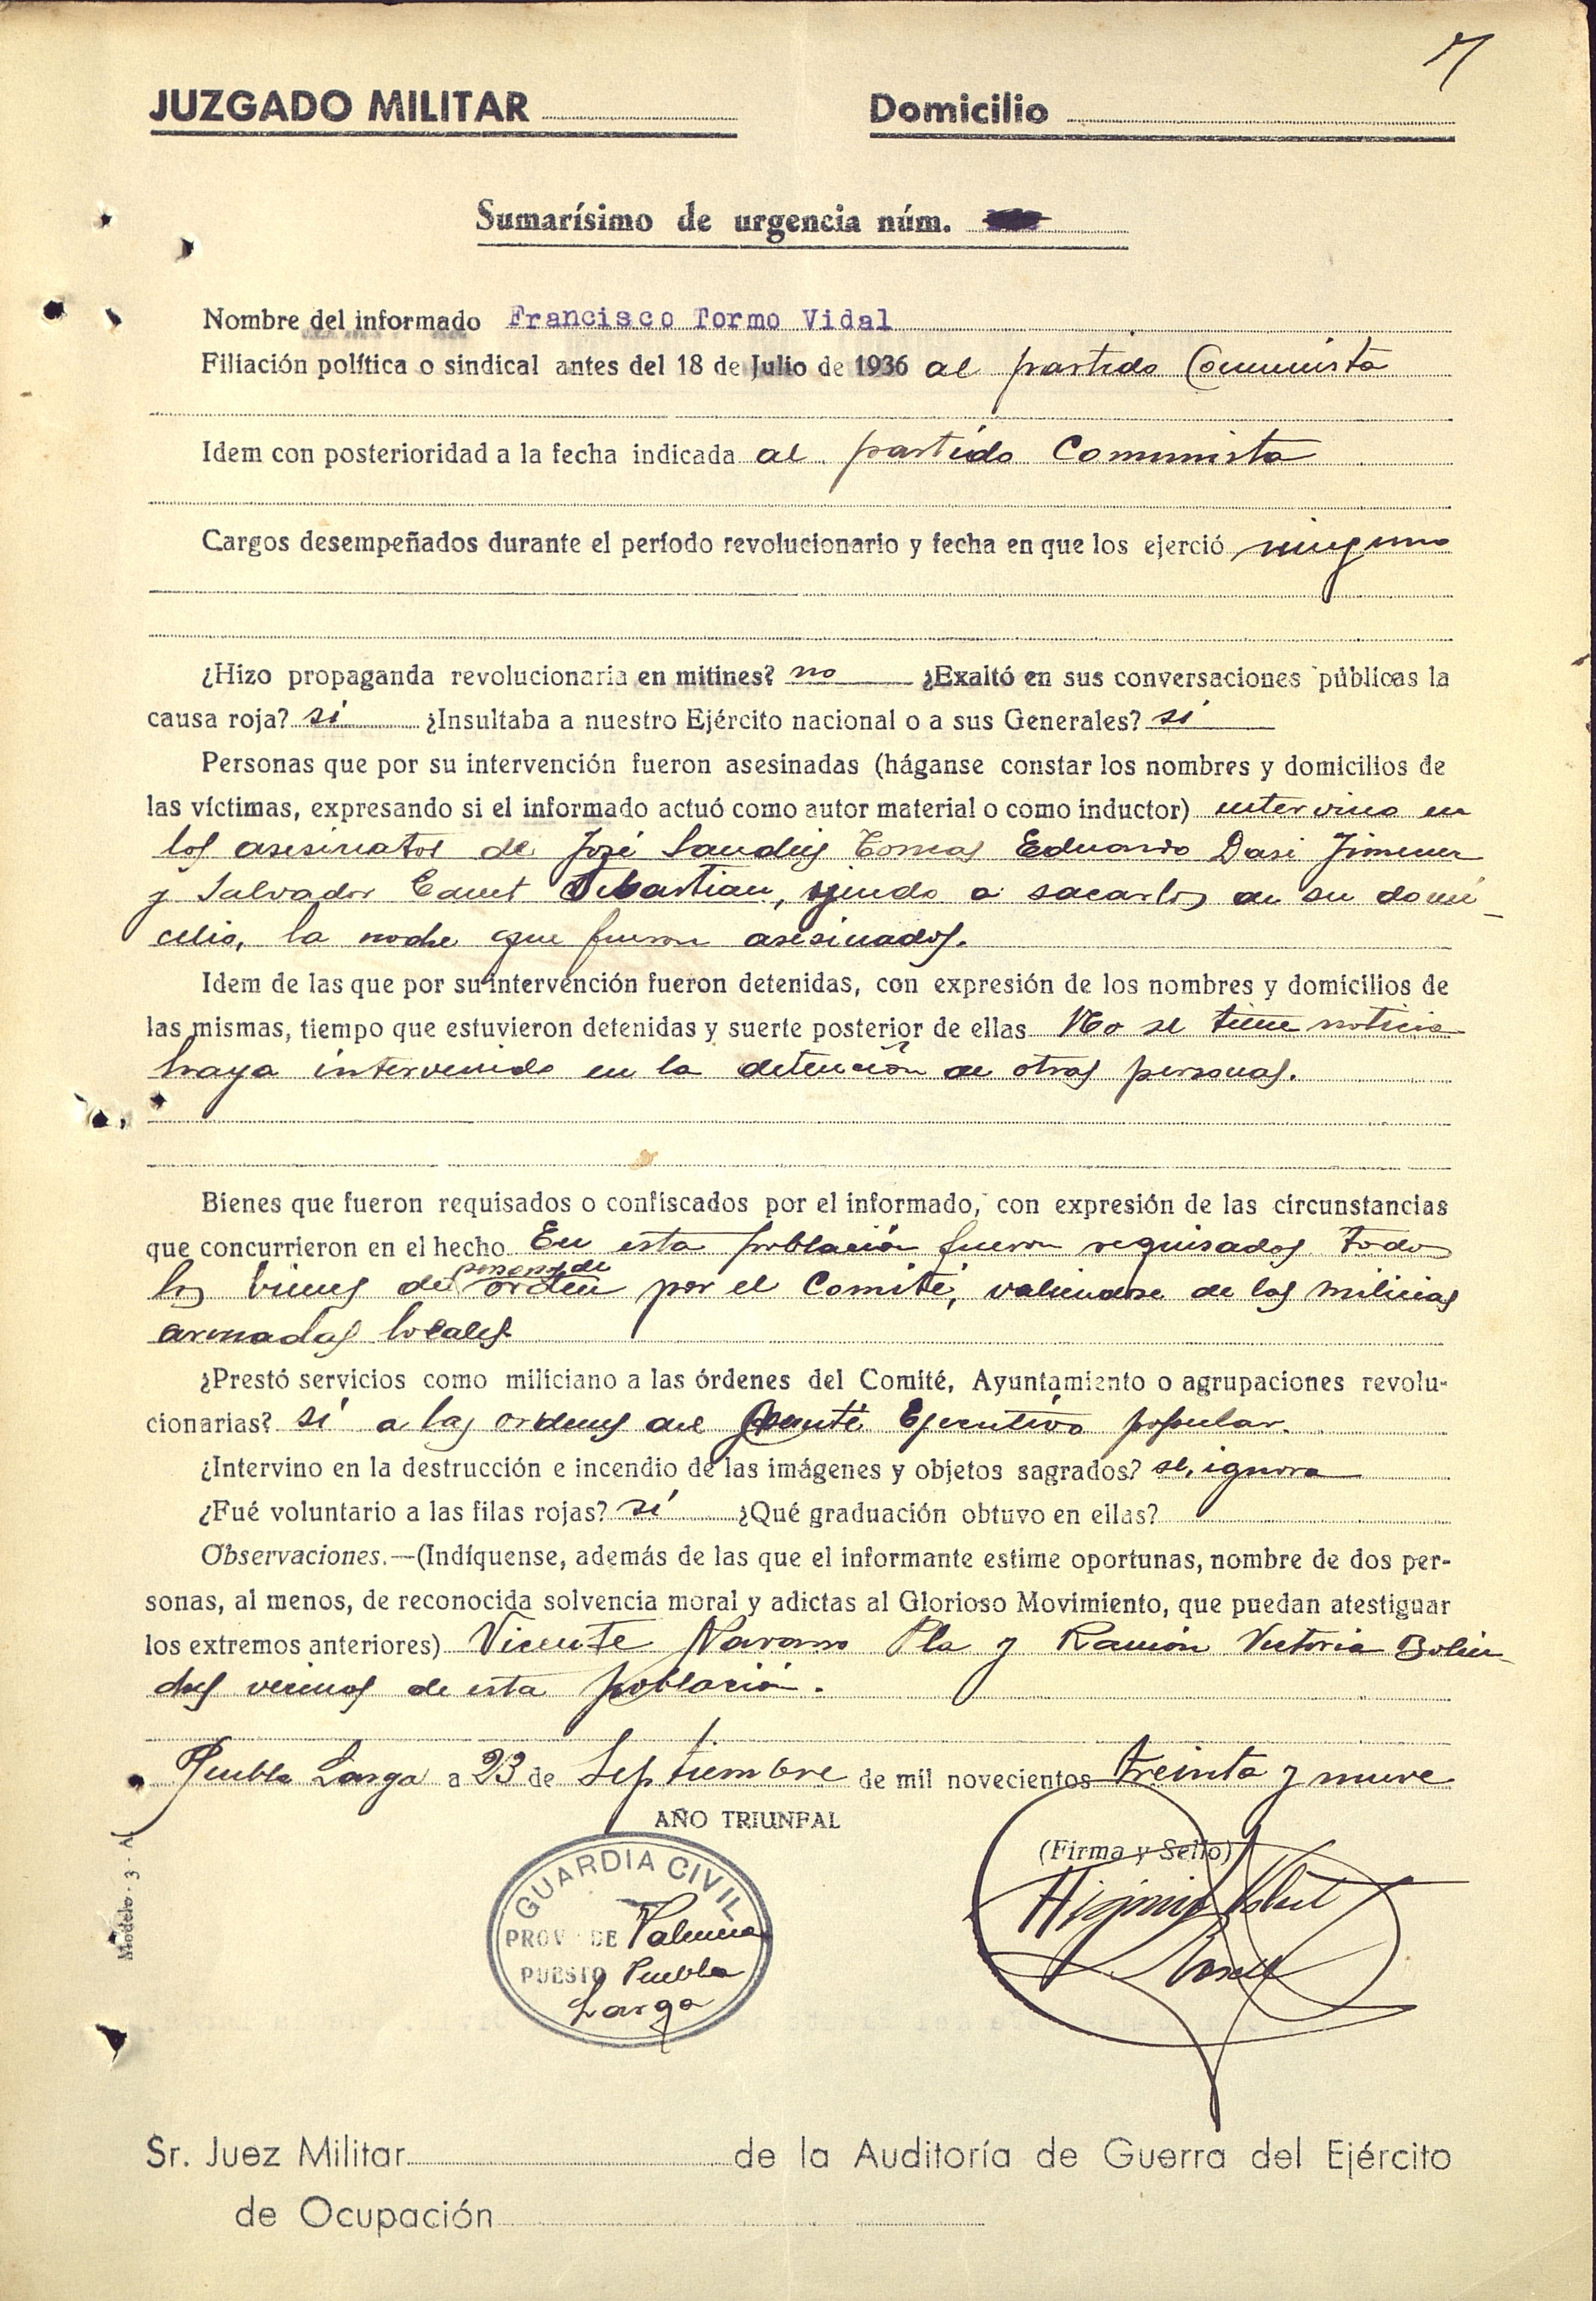 7
JUZGADO MILITAR
Domicilio
Sumarísimo de urgencia núm.
Nombre del informado Francisco Tormo Vidal
Filiación política o sindical antes del 18 de Julio de 1936 al partido Comunista
Idem con posterioridad a la fecha indicada al partido Comunista
Cargos desempeñados durante el período revolucionario y fecha en que los ejerció ninguno
¿Hizo propaganda revolucionaria en mitines? no ¿Exaltó en sus conversaciones públicas la
causa roja? sí ¿Insultaba a nuestro Ejército nacional o a sus Generales? sí
Personas que por su intervención fueron asesinadas (háganse constar los nombres y domicilios de
las víctimas, expresando si el informado actuó como autor material o como inductor) intervino en
los asesinatos de José Sandis Tomas Eduardo Dasi Jimenez
y Salvador Canet Sebastian, yendo a sacarlos de su domi-
cilio, la noche que fueron asesinados.
Idem de las que por su intervención fueron detenidas, con expresión de los nombres y domicilios de
las mismas, tiempo que estuvieron detenidas y suerte posterior de ellas No se tiene noticia
haya intervenido en la detención de otras personas.
Bienes que fueron requisados o confiscados por el informado, con expresión de las circunstancias
que concurrieron en el hecho En esta población fueron requisados todo
los bienes de personas de orden por el Comité, valiendose de las milicias
armadas locales
¿Prestó servicios como miliciano a las órdenes del Comité, Ayuntamiento o agrupaciones revolu-
cionarias? sí a las ordenes del Comité Ejecutivo popular.
¿Intervino en la destrucción e incendio de las imágenes y objetos sagrados? se ignora
¿Fué voluntario a las filas rojas? sí ¿Qué graduación obtuvo en ellas?
Observaciones.—(Indíquense, además de las que el informante estime oportunas, nombre de dos per-
sonas, al menos, de reconocida solvencia moral y adictas al Glorioso Movimiento, que puedan atestiguar
los extremos anteriores) Vicente Navarro Pla y Ramón Victoria
vecinos de esta población.
Puebla Larga a 23 de Septiembre de mil novecientos treinta y nueve
AÑO TRIUNFAL
(Firma y Sello)
GUARDIA CIVIL
PROV. DE Valencia
PUESTO Puebla
Larga
Higinio
Modelo - 3 - A
Sr. Juez Militar de la Auditoría de Guerra del Ejército
de Ocupación